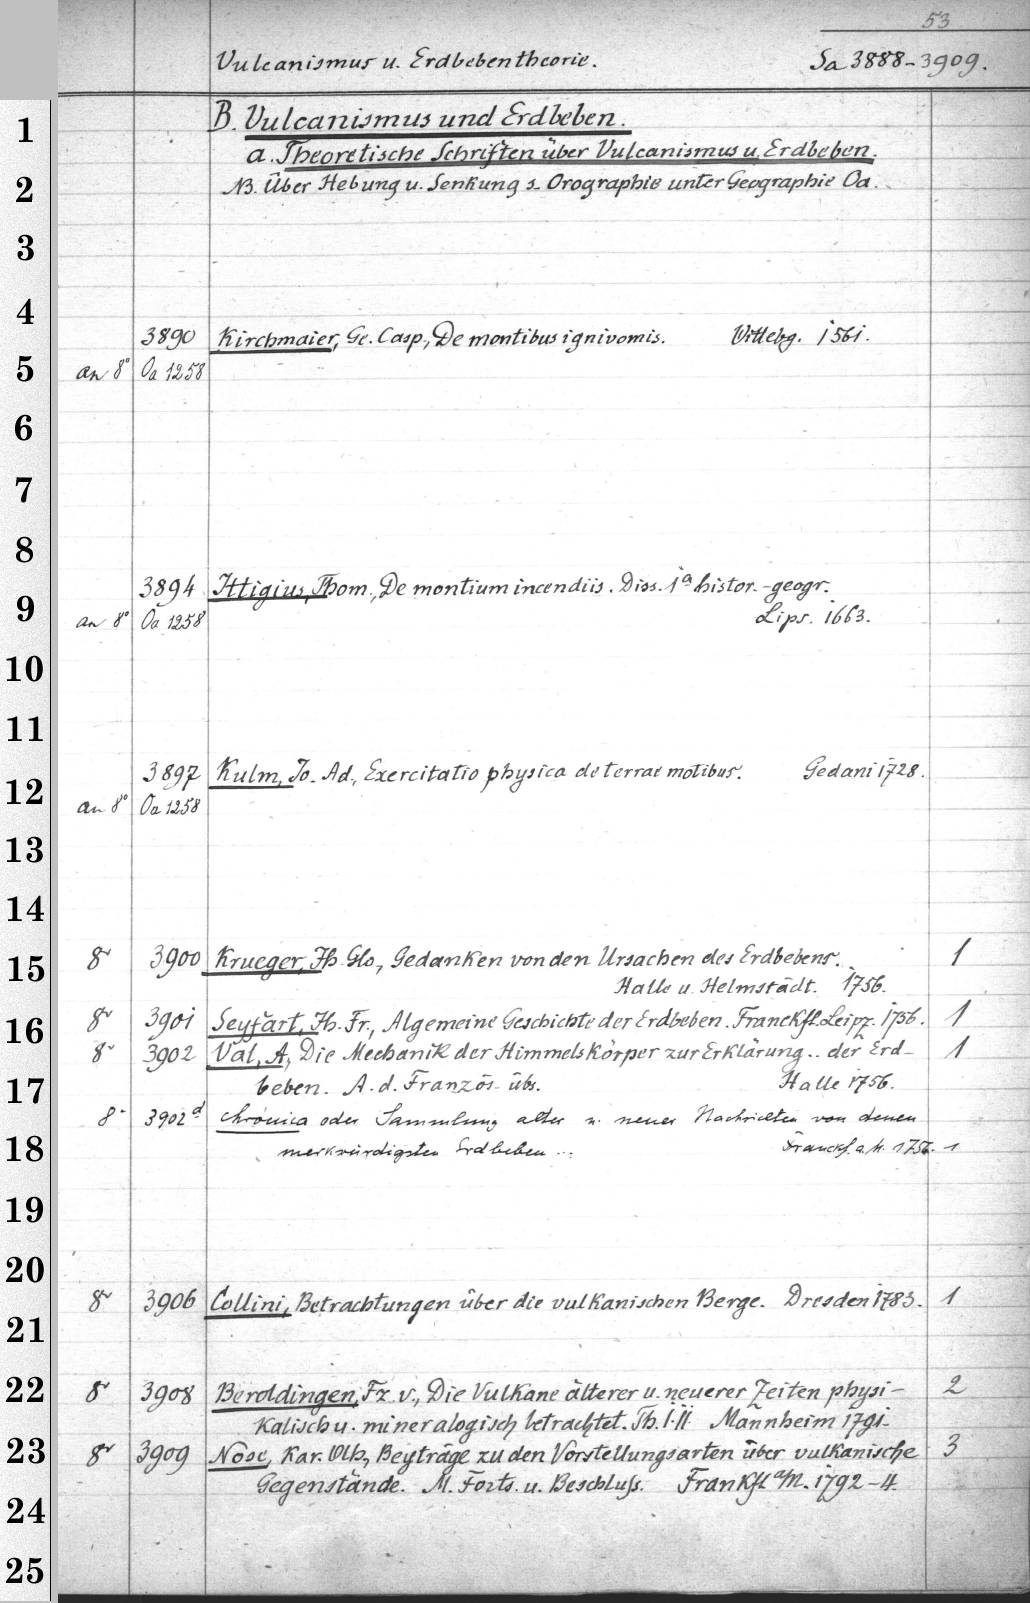 53
Vulcanismus u. Erdbebentheorie. Sa 3888-3909.
B. Vulcanismus und Erdbeben.
1
a. Theoretische Schriften über Vulcanismus u. Erdbeben.
2 NB. Über Hebung u. Senkung s. Orographie unter Geographie Oa.
3
4
3890 Kirchmaier, Ge. Casp., De montibus ignivomis. Wittebg. 1561.
5 an 8° Oa 1258
6
7
8
3894 Ittigius, Thom., De montium incendiis. Diss. 1ª histor.-geogr.
9 an 8° Oa 1258 Lips. 1663.
10
11
3897 Kulm, Jo. Ad., Exercitatio physica de terrae motibus. Gedani 1728.
12 an 8° Oa 1258
13
14
8° 3900 Krueger, Jh. Glo., Gedanken von den Ursachen des Erdbebens. 1
15 Halle u. Helmstädt. 1756.
16 8° 3901 Seyfart, Jh. Fr., Algemeine Geschichte der Erdbeben. Franckft. Leipz. 1756. 1
8° 3902 Val, A, Die Mechanik der Himmelskörper zur Erklärung .. der Erd- 1
17 beben. A. d. Französ. übs. Halle 1756.
8° 3902d Chronica oder Sammlung alter u. neuer Nachrichten von denen
18 merkwürdigsten Erdbeben ... Franckf. a. M. 1756. 1
19
20
8° 3906 Collini, Betrachtungen über die vulkanischen Berge. Dresden 1783. 1
21
22 8° 3908 Beroldingen, Fz. v., Die Vulkane älterer u. neuerer Zeiten physi- 2
kalisch u. mineralogisch betrachtet. Th. I. II. Mannheim 1791.
23 8° 3909 Nose, Kar. Wlh., Beyträge zu den Vorstellungsarten über vulkanische 3
Gegenstände. M. Forts. u. Beschluss. Frankft a/M. 1792-4.
24
25